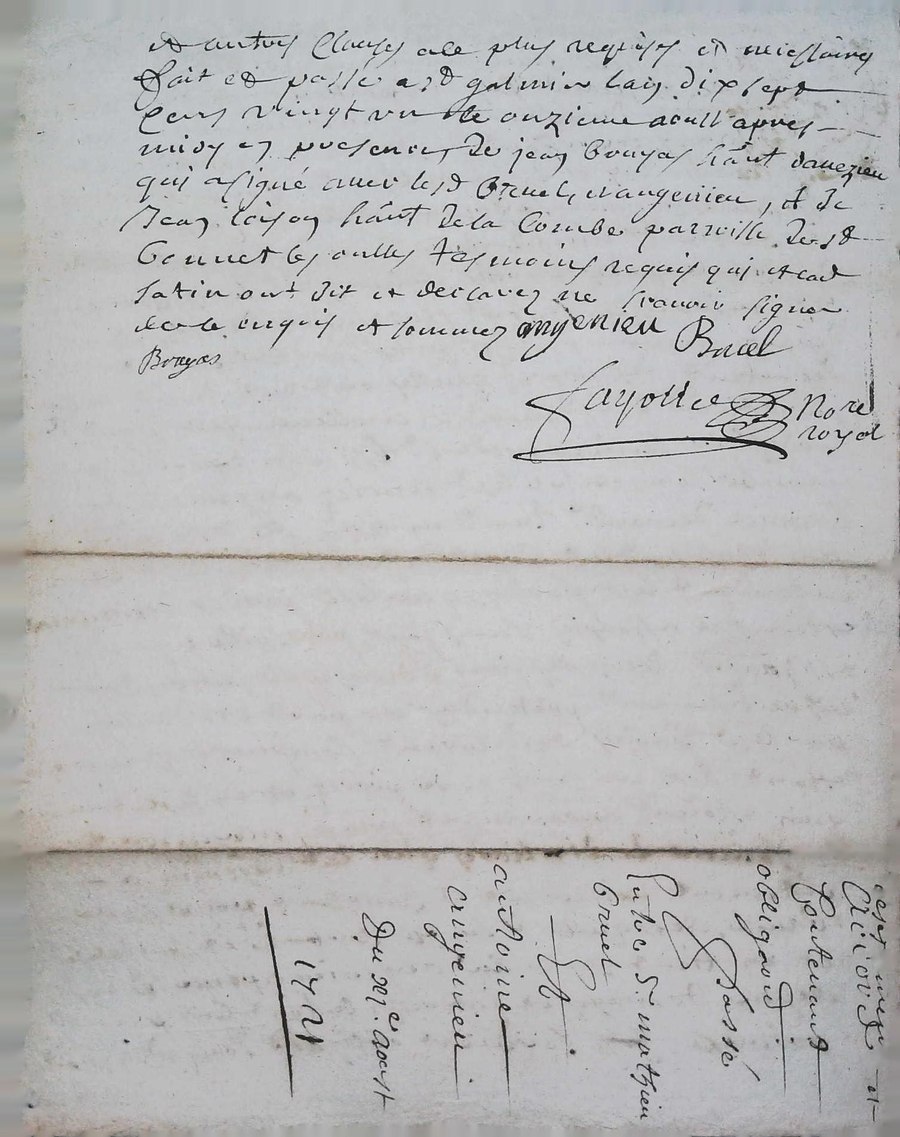 et autres clauses ale plus requises et necessaires
fait et passé a st galmier lan dix sept
cens vingt un le onzieme aoust apres
midy en presence de jean Bouyas hãnt dauezieu
qui a signé auec lesd Bruel, et angenieu, et de
Jean hãnt de la Combe parroisse de st
bonnet les oulles tesmoins requis qui et led
ont dit et declarez ne scauoir signer
de ce enquis et sommez angenieu Bruel
Bouyas
Nore
royal
et
Contenant
obligaon
Passé
Entre Sr mathieu
bruel
Et
anthoine
angenieu
Du xje aoust
1721